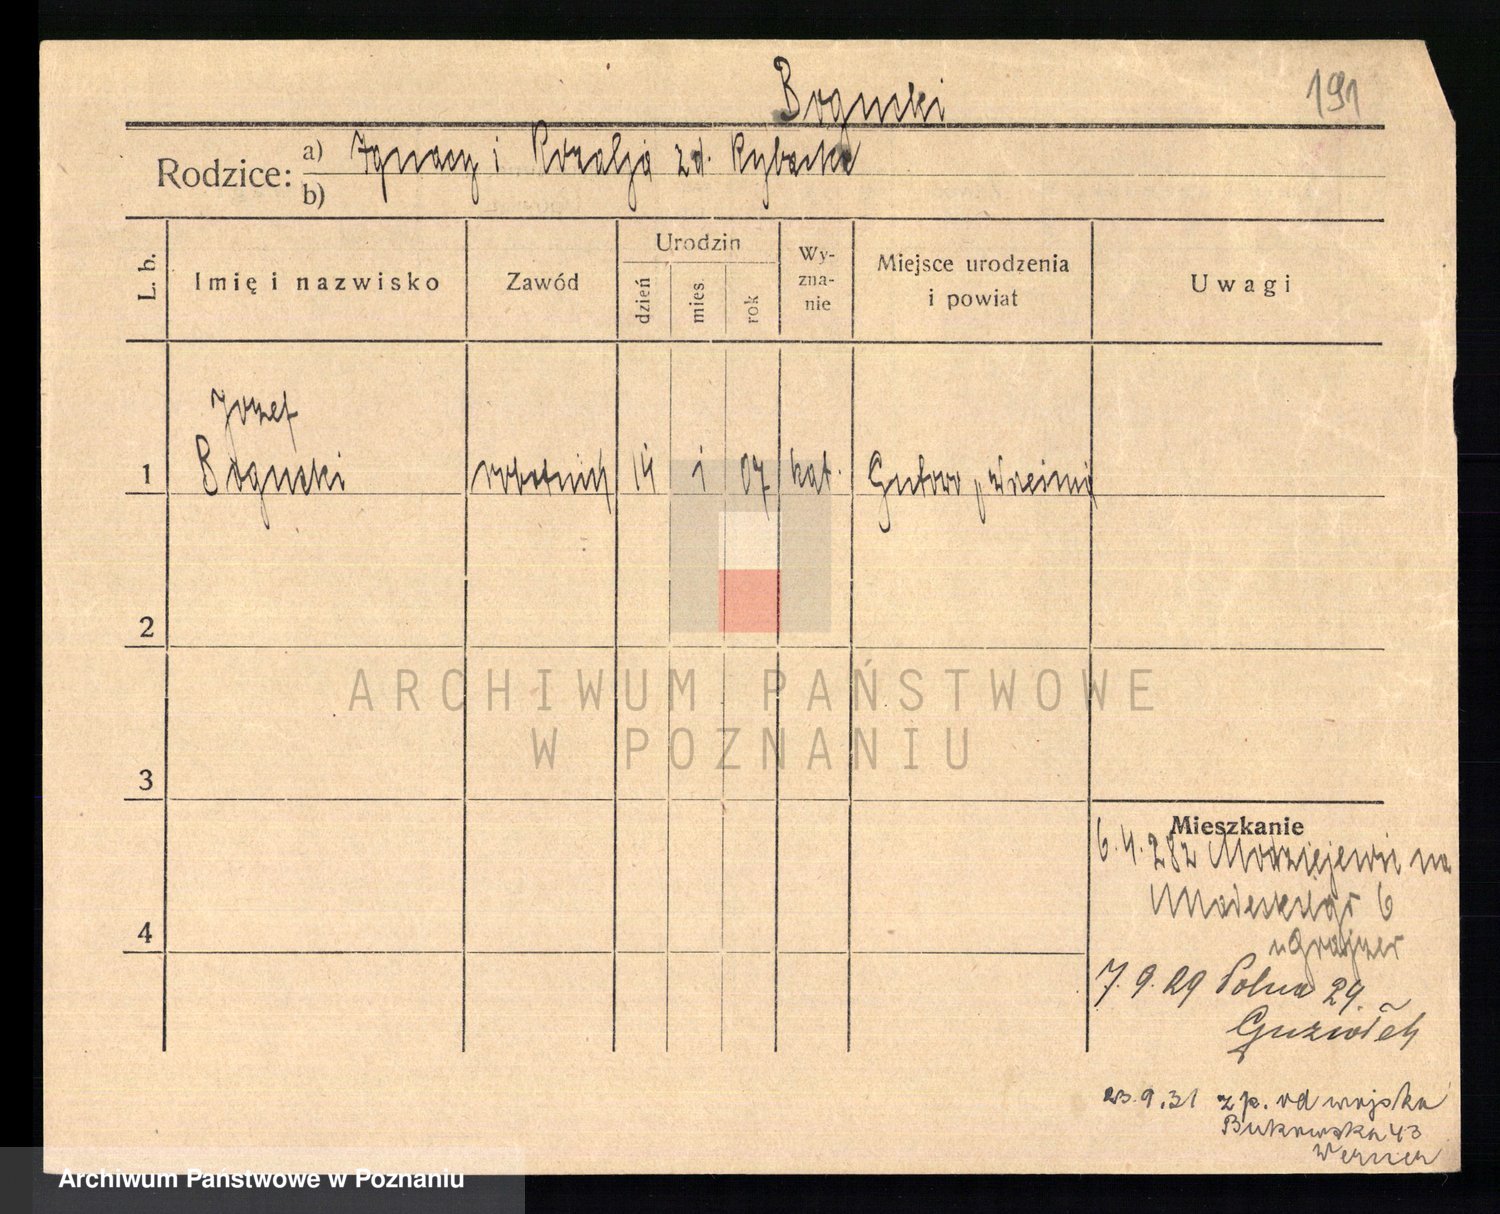 Boguski
191
Rodzice: a) Ignacy i Rozalja zd. Rybacka
b)
L. b.
Imię i nazwisko
Zawód
Urodzin
dzień
mies.
rok
Wy-
zna-
nie
Miejsce urodzenia
i powiat
Uwagi
Józef
1 Boguski robotnik 14 1 07 kat. Gutowo
2
3
4
ARCHIWUM PAŃSTWOWE
W POZNANIU
Mieszkanie
6.4.282
6
7.9.29 Polna 29.
23.9.31 zp. od wojska
Bukowska 43
Werner
Archiwum Państwowe w Poznaniu